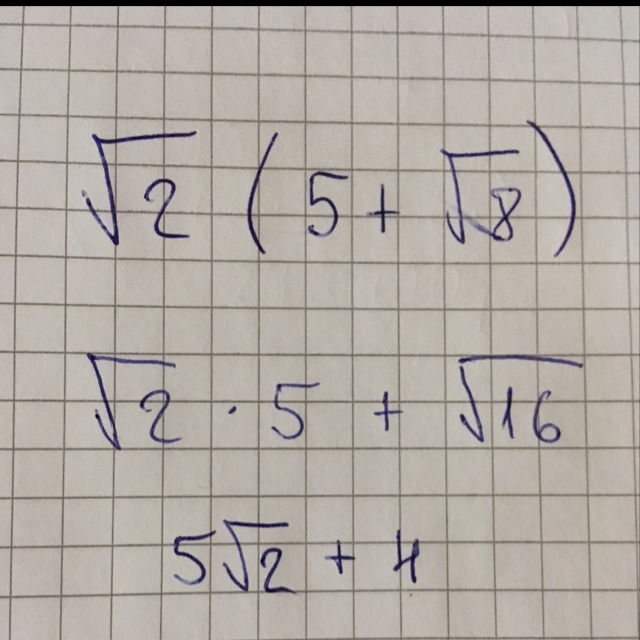 √2 ( 5 + √8 )
√2 · 5 + √16
5√2 + 4